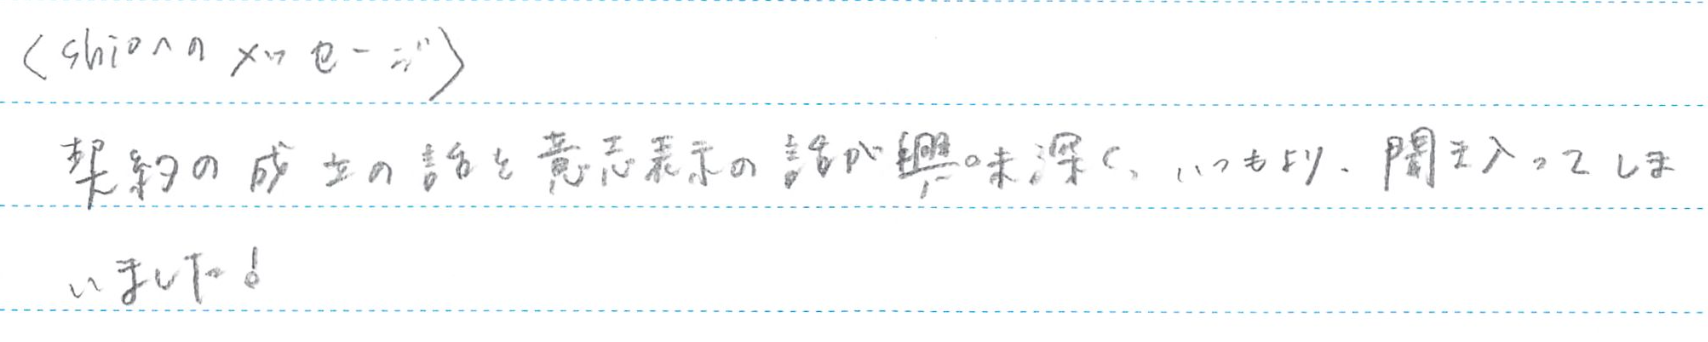 〈shioへのメッセージ〉
契約の成立の話と意志表示の話が興味深く、いつもより、聞き入ってしま
いました!